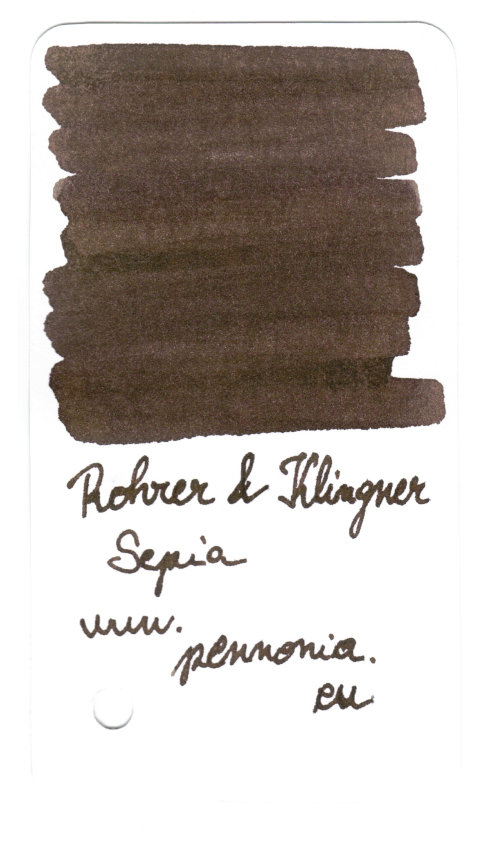 Rohrer & Klingner
Sepia
www.
pennonia.
eu